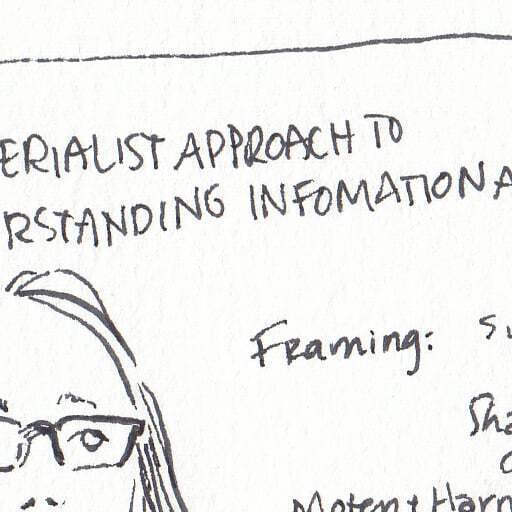 ERIALIST APPROACH TO
RSTANDING INFOMATIONA
Framing: S
Sha
Moten + Harn